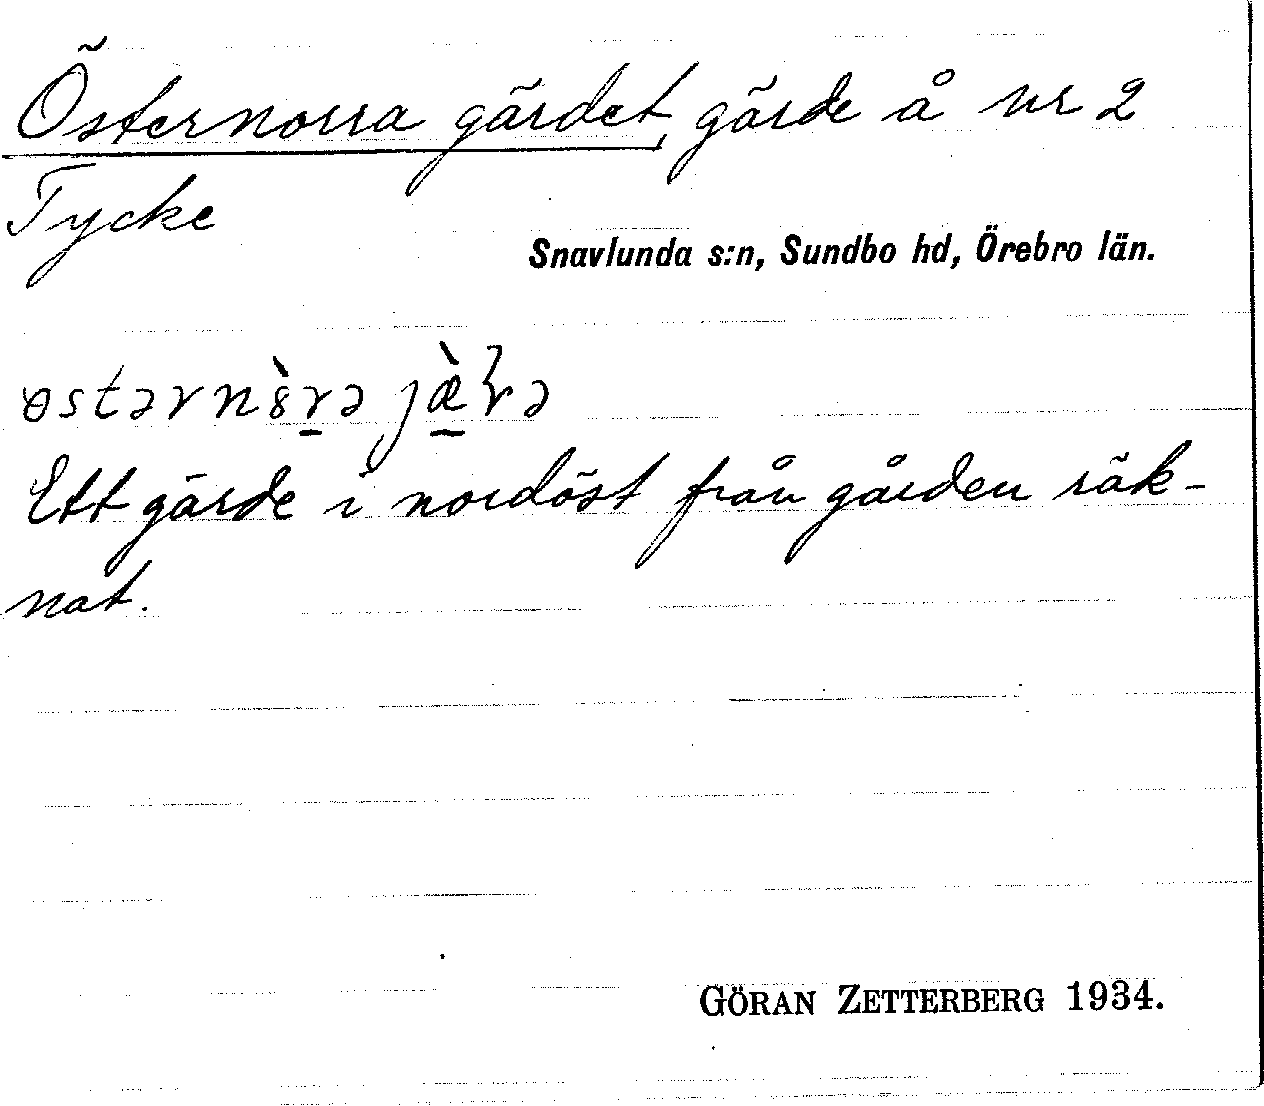 Östernorra gärdet, gärde å nr 2
Tycke
Snavlunda s:n, Sundbo hd, Örebro län.
Ett gärde i nordöst från gården räk-
nat.
GÖRAN ZETTERBERG 1934.